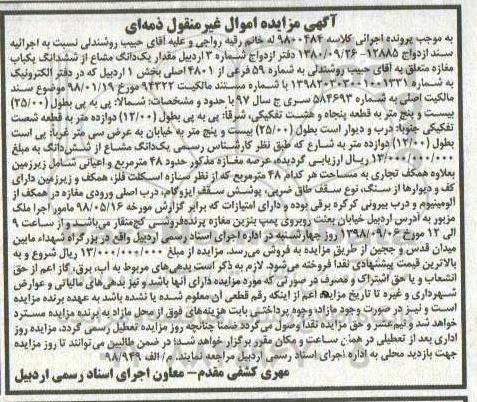 آگهی مزایده اموال غیرمنقول ذمه‌ای
به موجب پرونده اجرائی کلاسه ۹۸۰۰۴۸۴ له خانم رقیه رواجی و علیه آقای حبیب روشندلی نسبت به اجرائیه
سند ازدواج ۱۲۸۸۵- ۱۳۸۰/۰۹/۲۶ دفتر ازدواج شماره ۳ اردبیل مقدار یک‌دانگ مشاع از ششدانگ یکباب
مغازه متعلق به آقای حبیب روشندلی به شماره ۵۹ فرعی از ۴۸۰۱ اصلی بخش ۱ اردبیل که در دفتر الکترونیک
به شماره ۱۳۹۸۲۰۳۰۳۰۰۱۰۰۱۳۳۱ با شماره مستند مالکیت ۹۴۳۲۲ مورخ ۹۸/۰۱/۱۹ موضوع سند
مالکیت اصلی به شماره ۵۸۴۶۹۳ سری ج سال ۹۷ با حدود و مشخصات: شمالا: پی به پی بطول (۲۵/۰۰)
بیست و پنج متر به قطعه پنجاه و هشت تفکیکی، شرقا: پی به پی بطول (۱۲/۰۰) دوازده متر به قطعه شصت
تفکیکی جنوبا: درب و دیوار است بطول (۲۵/۰۰) بیست و پنج متر به خیابان به عرض سی متر غربا: پی است
بطول (۱۲/۰۰) دوازده متر به شارع که طبق نظر کارشناس رسمی یک‌دانگ مشاع از شش‌دانگ به مبلغ
۱۳/۰۰۰/۰۰۰/۰۰۰ ریال ارزیابی گردیده، عرصه مغازه مذکور حدود ۴۸ مترمربع و اعیانی شامل زیرزمین
بعلاوه همکف تجاری به مساحت هر کدام ۴۸ مترمربع که از نظر سازه اسکلت فلز، همکف و زیرزمین دارای
کف و دیوارها از سنگ، نوع سقف طاق ضربی، پوشش سقف ایزوگام، درب اصلی ورودی مغازه در همکف از
الومینیوم و درب بیرونی کرکره برقی بوده و دارای امتیازات که برابر گزارش مورخه ۹۸/۰۵/۱۶ مامور اجرا ملک
مزبور به آدرس اردبیل خیابان بعثت روبروی پمپ بنزین مغازه پرنده‌فروشی کج‌منقار می‌باشد، از ساعت ۹
الی ۱۲ مورخ ۱۳۹۸/۰۹/۰۶ روز چهارشنبه در اداره اجرای اسناد رسمی اردبیل واقع در بزرگراه شهداء مابین
میدان قدس و ججین از طریق مزایده به فروش می‌رسد. مزایده از مبلغ ۱۳/۰۰۰/۰۰۰/۰۰۰ ریال شروع و به
بالاترین قیمت پیشنهادی نقدا فروخته می‌شود. لازم به ذکر است بدهی‌های مربوط به آب، برق، گاز اعم از حق
انشعاب و یا حق اشتراک و مصرف در صورتی که مورد مزایده دارای آنها باشد و نیز بدهی‌های مالیاتی و عوارض
شهرداری و غیره تا تاریخ مزایده اعم از اینکه رقم قطعی آن معلوم شده یا نشده باشد به عهده برنده مزایده
است و نیز در صورت وجود مازاد، وجوه پرداختی بابت هزینه‌های فوق از محل مازاد به برنده مزایده مسترد
خواهد شد و نیم‌عشر و حق مزایده نقدا وصول می‌گردد ضمنا چنانچه روز مزایده تعطیل رسمی گردد، مزایده روز
اداری بعد از تعطیلی در همان ساعت و مکان مقرر برگزار خواهد شد؛ در ضمن طالبین می‌توانند تا روز مزایده
جهت بازدید محلی به اداره اجرای اسناد رسمی اردبیل مراجعه نمایند. م/الف ۹۸/۹۴۹
مهری کشفی مقدم- معاون اجرای اسناد رسمی اردبیل